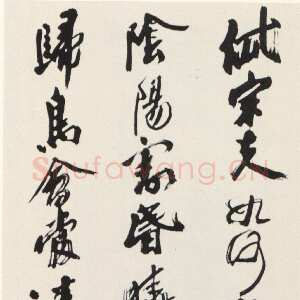 岱宗夫如何
陰陽割昏曉
歸鳥會當
Shufawang.CN